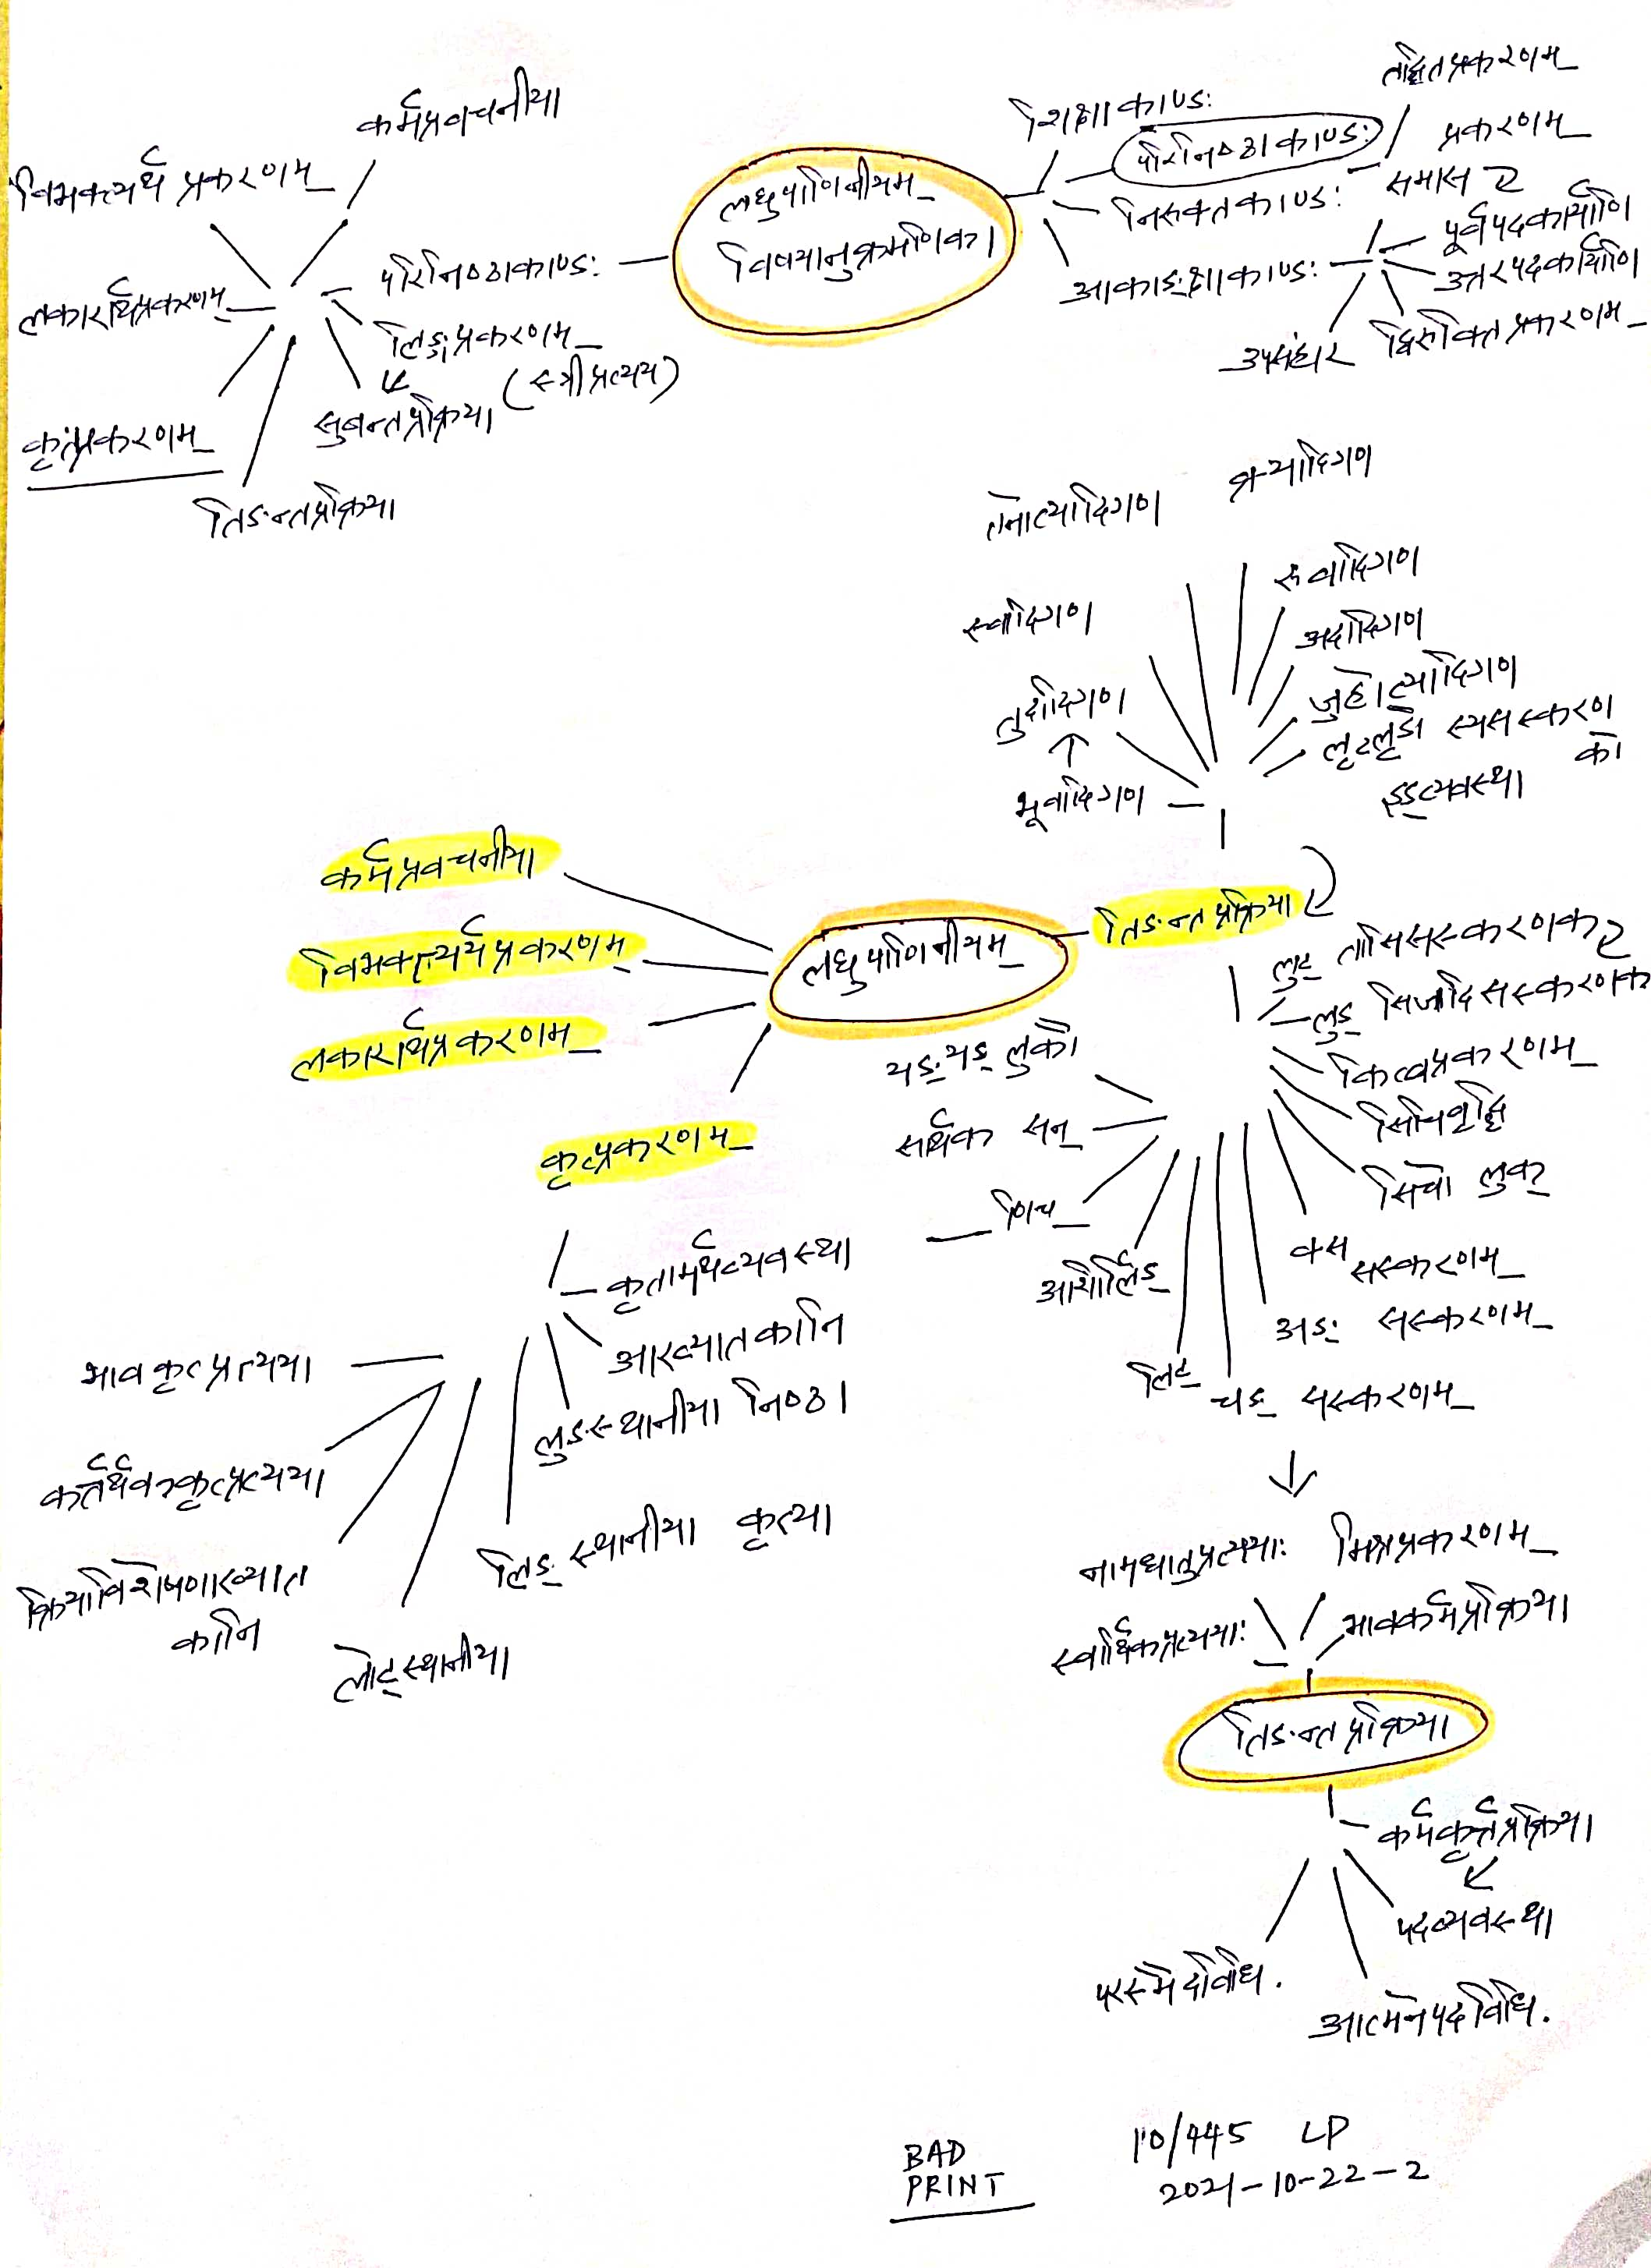 तद्धितप्रकरणम्
कर्मप्रवचनीया
शिक्षाकाण्ड:
परिनिष्ठाकाण्ड:
प्रकरणम्
विभक्त्यर्थ प्रकरणम्
लघुपाणिनीयम्
समास
निरुक्तकाण्ड:
पूर्वपदकार्याणि
विषयानुक्रमणिका
परिनिष्ठाकाण्ड:
आकाङ्क्षाकाण्ड:
उत्तरपदकार्याणि
लकारार्थप्रकरणम्
लिङ्गप्रकरणम्
(स्त्रीप्रत्यय)
उपसंहार
द्विरुक्तिप्रकरणम्
सुबन्तप्रक्रिया
कृत्प्रकरणम्
तिङन्तप्रक्रिया
क्र्यादिगण
तनोत्यादिगण
रुधादिगण
स्वादिगण
अदादिगण
जुहोत्यादिगण
तुदादिगण
लृटलृङो स्यसंस्करण
को
भूवादिगण
इड्व्यवस्था
कर्मप्रवचनीया
तिङन्त प्रक्रिया
विभक्त्यर्थ प्रकरणम्
लघुपाणिनीयम्
लुट् तासिसंस्करणक
लुङ् सिजादिसंस्करणक
लकारार्थप्रकरणम्
यङ् यङ् लुको
कित्वप्रकरणम्
सार्थक सन्
सिचिवृद्धि
कृत्प्रकरणम्
सिचो लुक्
णिच्
कृतामर्थव्यवस्था
क्स संस्करणम्
आशीर्लिङ्
अङ् संस्करणम्
आख्यातकानि
भावकृत्प्रत्यया
लिट्
चङ् संस्करणम्
लुङ्स्थानीया निष्ठा
कर्त्रर्थककृत्प्रत्यया
लिङ् स्थानीया कृत्या
नामधातुप्रत्यया:
मिश्रप्रकरणम्
क्रियाविशेषणाख्यात
कानि
स्वार्थिकप्रत्यया:
भावकर्मप्रक्रिया
लोट्स्थानीया
तिङन्त प्रक्रिया
कर्मकर्तृप्रक्रिया
पदव्यवस्था
परस्मैपदविधि.
आत्मनेपदविधि.
BAD
PRINT
10/445 LP
2021-10-22-2